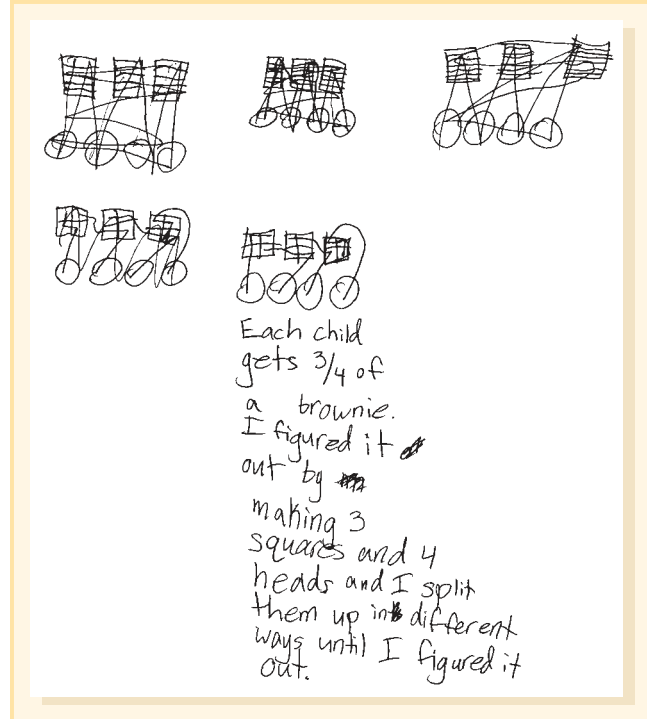 Each child
gets 3/4 of
a brownie.
I figured it
out by
making 3
squares and 4
heads and I split
them up in different
ways until I figured it
out.